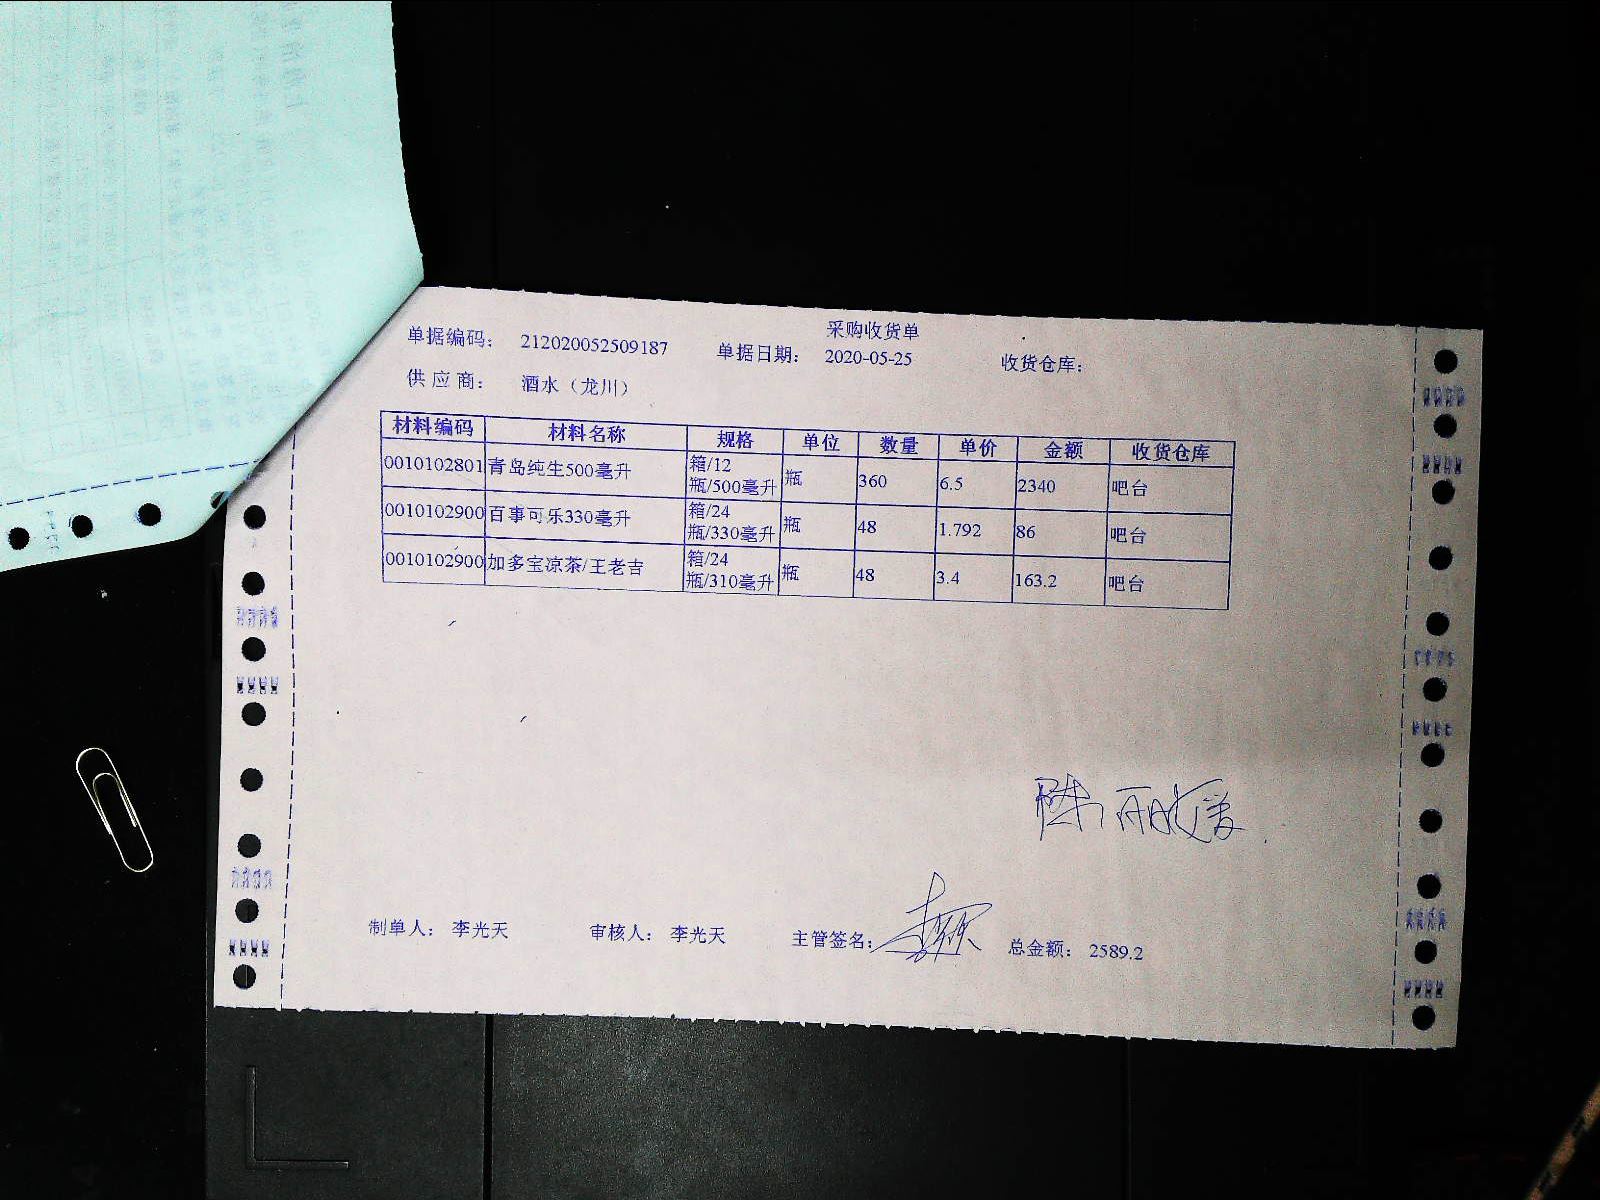 采购收货单
单据编码： 212020052509187 单据日期： 2020-05-25 收货仓库：
供 应 商： 酒水（龙川）
材料编码 材料名称 规格 单位 数量 单价 金额 收货仓库
0010102801 青岛纯生500毫升 箱/12瓶/500毫升 瓶 360 6.5 2340 吧台
0010102900 百事可乐330毫升 箱/24瓶/330毫升 瓶 48 1.792 86 吧台
0010102900 加多宝凉茶/王老吉 箱/24瓶/310毫升 瓶 48 3.4 163.2 吧台
制单人： 李光天 审核人： 李光天 主管签名： 总金额： 2589.2